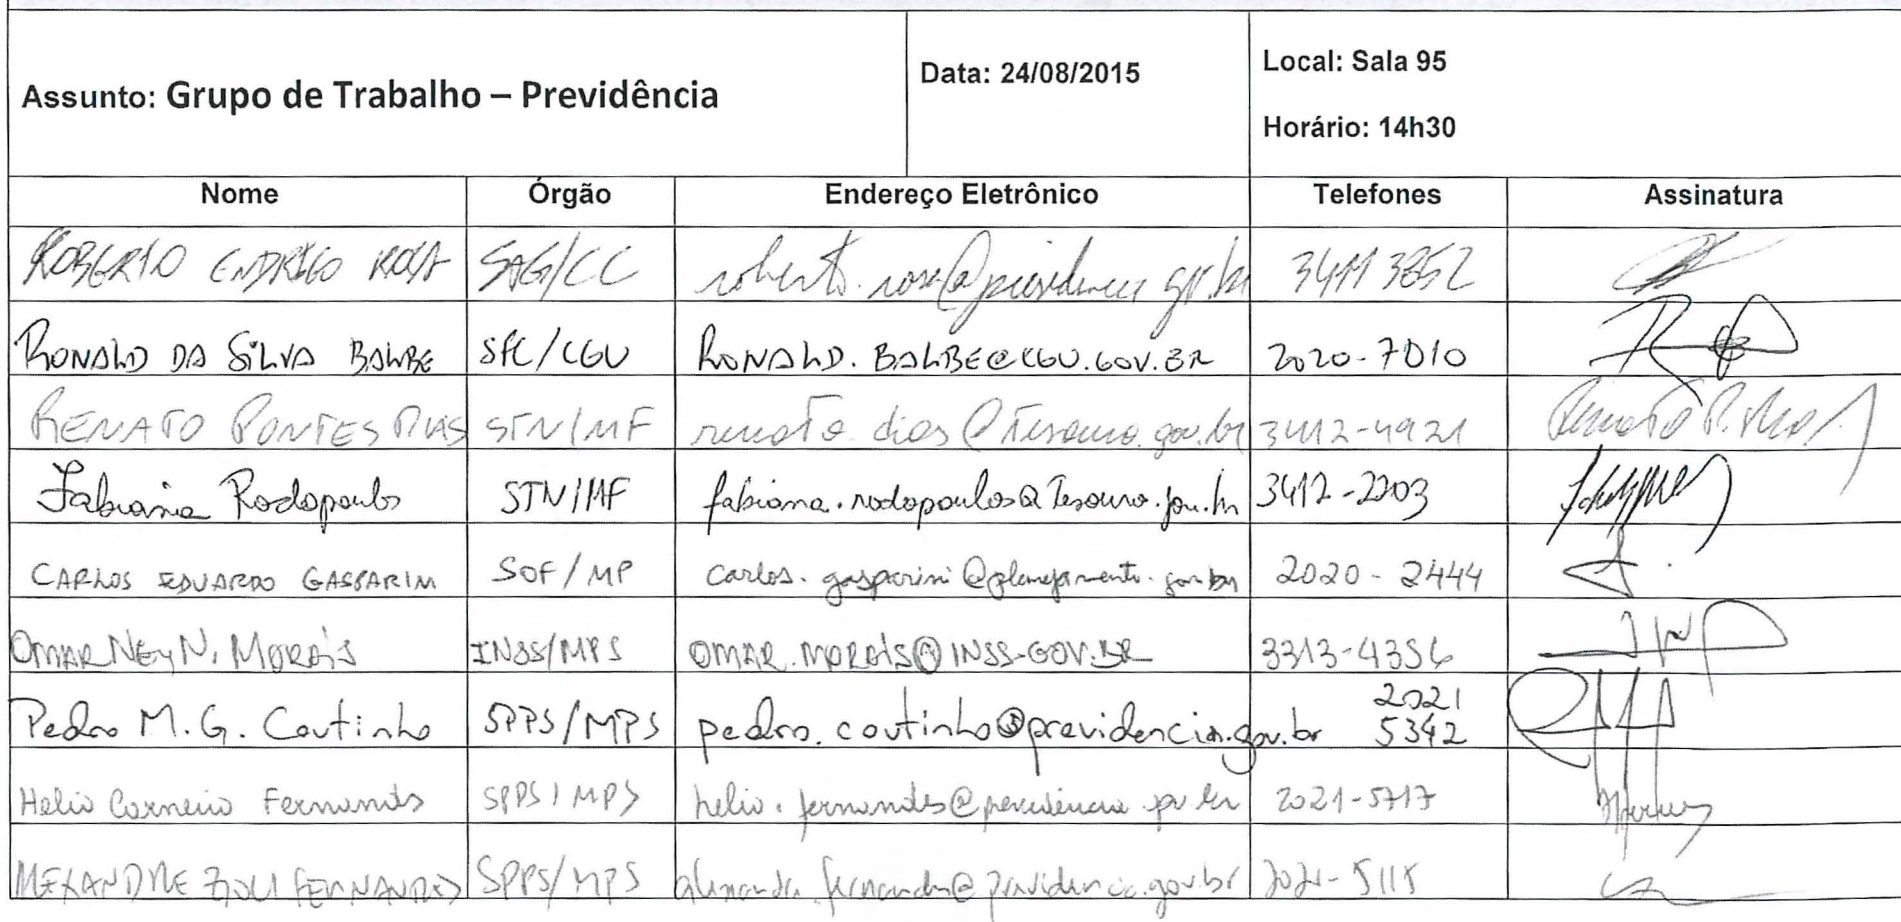 Assunto: Grupo de Trabalho – Previdência
Data: 24/08/2015
Local: Sala 95
Horário: 14h30
Nome Órgão Endereço Eletrônico Telefones Assinatura
ROBERTO ENDRIGO ROSA SAG/CC roberto.rosa@presidencia.gov.br 3411 3852
RONALD DA SILVA BALBE SFC/CGU RONALD.BALBE@CGU.GOV.BR 2020-7010
RENATO PONTES DIAS STN/MF renato.dias@tesouro.gov.br 3412-4921
Fabiana Rodopoulos STN/MF fabiana.rodopoulos@Tesouro.gov.br 3412-2203
CARLOS EDUARDO GASPARINI SOF/MP carlos.gasparini@planejamento.gov.br 2020-2444
OMAR NEY N. MORAIS INSS/MPS OMAR.MORAIS@INSS.GOV.BR 3313-4356
Pedro M. G. Coutinho SPPS/MPS pedro.coutinho@previdencia.gov.br 2021
5342
Helio Carneiro Fernandes SPPS/MPS helio.fernandes@previdencia.gov.br 2021-5717
ALEXANDRE ZIOLI FERNANDES SPPS/MPS alexandre.fernandes@previdencia.gov.br 2021-5115